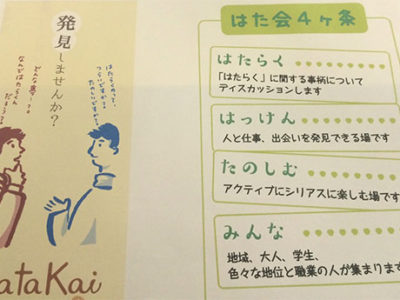 発見しませんか?
はたらくって、
つらいですか?
たのしいですか?
なんではたらくん
だろう?
ataKai
はた会4ヶ条
はたらく
「はたらく」に関する事柄について
ディスカッションします
はっけん
人と仕事、出会いを発見できる場です
たのしむ
アクティブにシリアスに楽しむ場です
みんな
地域、大人、学生、
色々な地位と職業の人が集まります